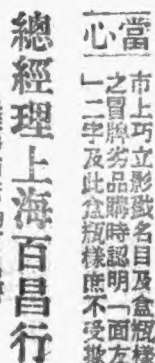 當心
市上巧立影戤名目及盒瓶樣
之冒牌劣品購時認明「面左
」二字及此盒瓶樣庶不受欺
總經理上海百昌行